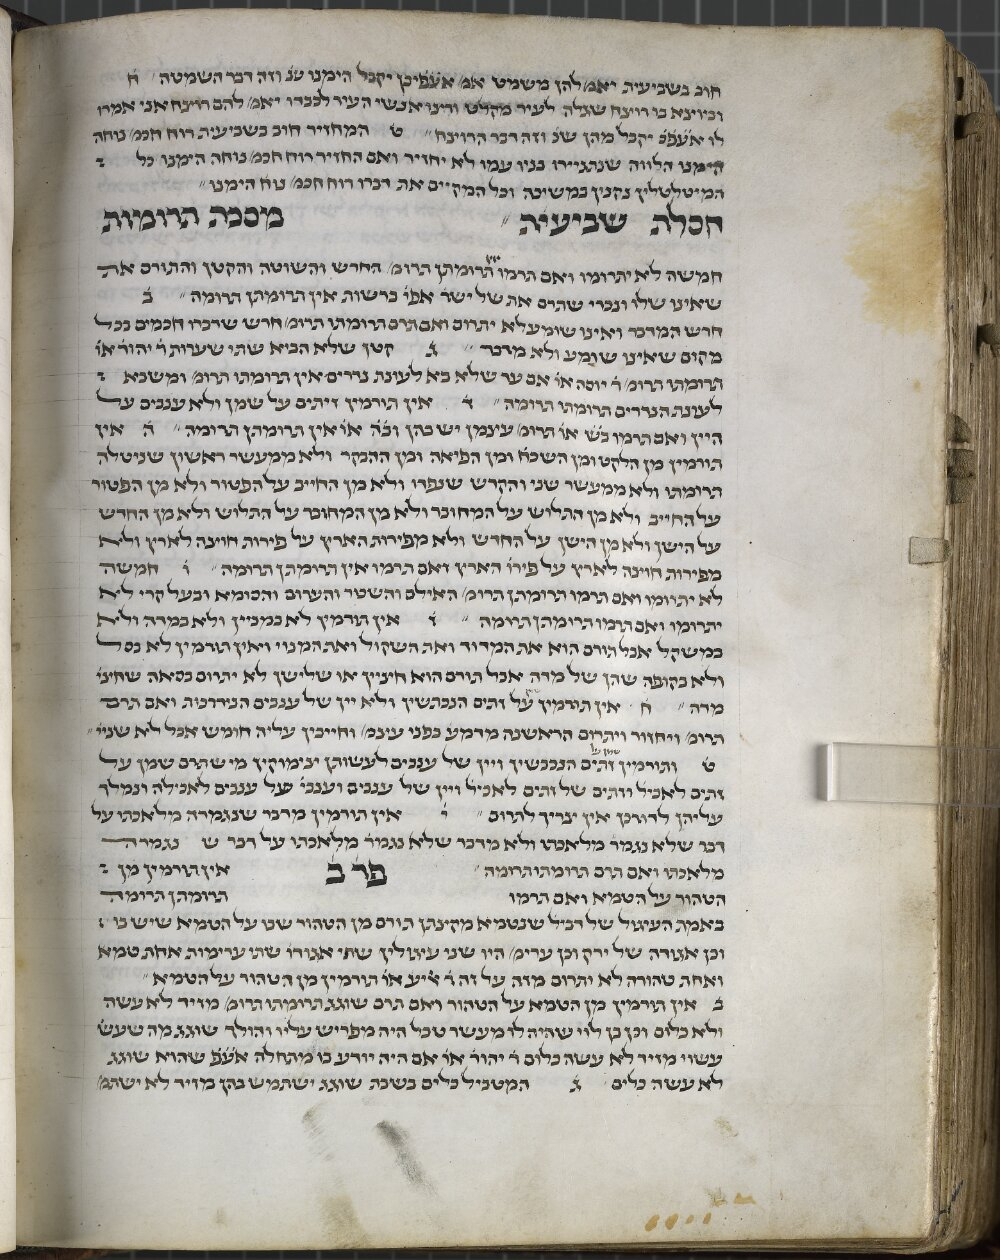 חוב בשביעית יאמ׳ להן משמט אני אמ׳ אעפ׳כן יקבל הימנו שנ׳ וזה דבר השמטה ״ ח
וכיוצא בו רוצח שגלה לעיר מקלט ורצו אנשי העיר לכבדו יאמ׳ להם רוצח אני אמרו
לו אעפ׳כ יקבל מהן שנ׳ וזה דבר הרוצח ״ ט המחזיר חוב בשביעית רוח חכמ׳ נוחה
הימנו הלווה שנתגיירו בניו עמו לא יחזיר ואם החזיר רוח חכמ׳ נוחה הימנו כל
המיטלטלין נקנין במשיכה וכל המקיים את דברו רוח חכמ׳ נוח הימנו ״
חסלת שביעית ״ מסכת תרומות
חמשה לא יתרומו ואם תרמו אין תרומתן תרומ׳ החרש והשוטה והקטן והתורם את
שאינו שלו ונכרי שתרם את של ישר׳ אפי׳ ברשות אין תרומתן תרומה ״ ב
חרש המדבר ואינו שומע לא יתרום ואם תרם תרומתו תרומ׳ חרש שדברו חכמים בכל
מקום שאינו שומע ולא מדבר ״ ג קטן שלא הביא שתי שערות ר׳ יהוד׳ או׳
תרומתו תרומ׳ ר׳ יוסה או׳ אם עד שלא בא לעונת נדרים אין תרומתו תרומ׳ ומשבא
לעונת הנדרים תרומתו תרומה ״ ד אין תורמין זיתים על שמן ולא ענבים על
היין ואם תרמו בש׳ או׳ תרומ׳ עינמן יש בהן ובה׳ או׳ אין תרומתן תרומה ״ ה אין
תורמין מן הלקט ומן השכח׳ ומן הפיאה ומן ההבקר ולא ממעשר ראשון שניטלה
תרומתו ולא ממעשר שני והקדש שנפדו ולא מן החייב על הפטור ולא מן הפטור
על החייב ולא מן התלוש על המחובר ולא מן המחובר על התלוש ולא מן החדש
על הישן ולא מן הישן על החדש ולא מפירות הארץ על פירות חוצה לארץ ולא
מפירות חוצה לארץ על פירו׳ הארץ ואם תרמו אין תרומתן תרומה ״ ו חמשה
לא יתרומו ואם תרמו תרומתן תרומ׳ האילם והשכור והערום והסומא ובעל קרי לא
יתרומו ואם תרמו תרומתן תרומה ״ ז אין תורמין לא במניין ולא במדה ולא
במשקל אבל תורם הוא את המדוד ואת השקול ואת המנוי ואין תורמין לא בסל
ולא בקופה שהן של מדה אבל תורם הוא חציין או שלישן לא יתרום בסאה שחציה
מדה ״ ח אין תורמין שמן על זתים הנכתשין ולא יין על ענבים הנידרכות ואם תרם
תרומ׳ ויחזור ויתרום הראשונה מדמע בפני עצמ׳ וחייבין עליה חומש אבל לא שניי׳ ״
ט ותורמין שמן על זתים הנכבשין ויין על ענבים לעשותן צימוקין מי שתרם שמן על
זתים לאכיל׳ וזתים על זתים לאכיל׳ ויין על ענבים וענבי׳ על ענבים לאכילה ונמלך
עליהן לדורכן אין צריך לתרום ״ י אין תורמין מדבר שנגמרה מלאכתו על
דבר שלא נגמר׳ מלאכתו ולא מדבר שלא נגמר׳ מלאכתו על דבר ש נגמרה
מלאכתו ואם תרם תרומתו תרומה ״ פר׳ ב אין תורמין מן
הטהור על הטמא ואם תרמו תרומתן תרומה
באמת העיגול של דביל׳ שנטמא מקצתן תורם מן הטהור שבו על הטמא שיש בו
וכן אגודה של ירק וכן ערימ׳ היו שני עיגולין שתי אגודו׳ שתי ערימות אחת טמא
ואחת טהורה לא יתרום מזה על זה ר׳ ליע׳ או׳ תורמין מן הטהור על הטמא ״
ב אין תורמין מן הטמא על הטהור ואם תרם שוגג תרומתו תרומ׳ מזיד לא עשה
ולא כלום וכן בן לוי שהיה לו מעשר טבל היה מפריש עליו והולך שוגג מה שעש׳
עשוי מזיד לא עשה כלום ר׳ יהוד׳ או׳ אם היה יודע בו מתחלה אעפ׳ שהוא שוגג
לא עשה כלים ג המטביל כלים בשבת שוגג ישתמש בהן מזיד לא ישתמ׳